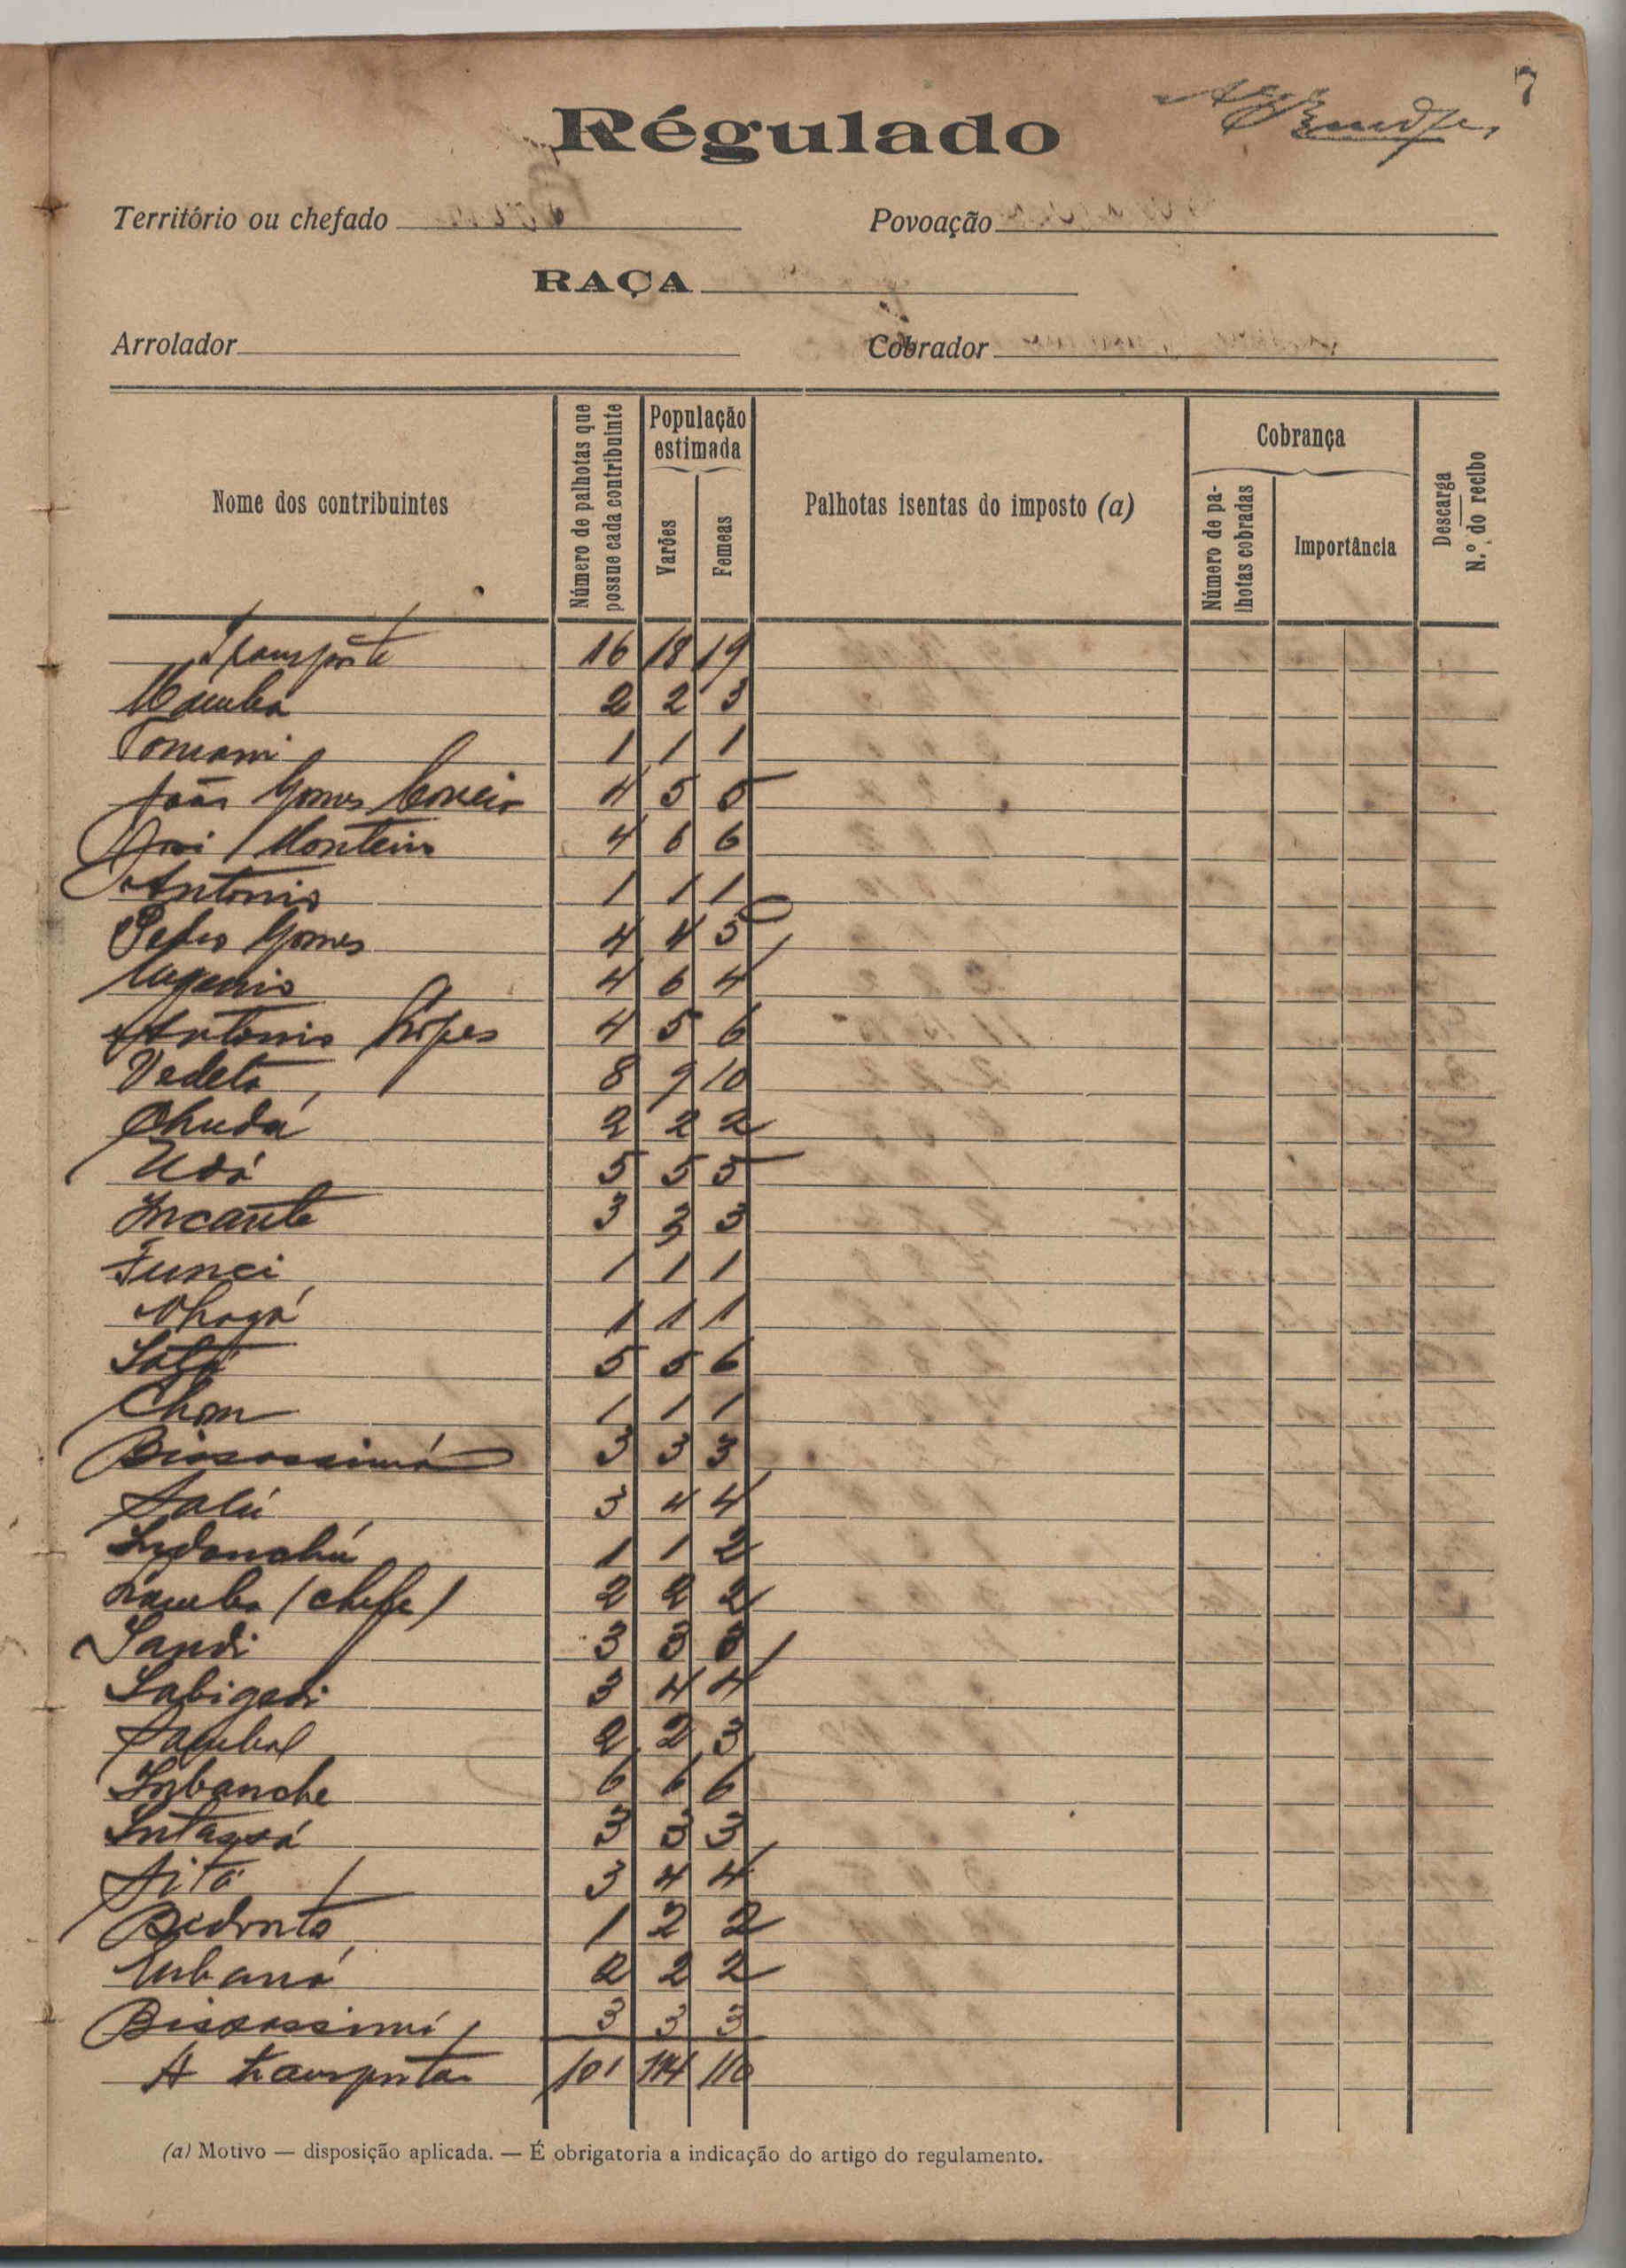 7
Régulado
Território ou chefado
Povoação
RAÇA
Arrolador
Cobrador
Nome dos contribuintes
Número de palhotas que possue cada contribuinte
População estimada
Varões
Femeas
Palhotas isentas do imposto (a)
Cobrança
Número de palhotas cobradas
Importância
Descarga
N.º do recibo
Transporte 16 18 19
Mamba 2 2 3
Tomani 1 1 1
João Gomes Correia 4 5 5
José Monteiro 4 6 6
Antonio 1 1 1
Pedro Gomes 4 4 5
Eugenio 4 6 4
Antonio Lopes 4 5 6
Vedeta 8 9 10
Chudá 2 2 2
Udá 5 5 5
Incante 3 3 3
Funci 1 1 1
5 5 6
Chom 1 1 1
Biosossimá 3 3 3
Salú 3 4 4
Indonchú 1 1 2
(chefe) 2 2 2
Sandi 3 3 3
Sabigadi 3 4 4
Sambal 2 2 3
Inbanche 6 6 6
3 3 3
Sitá 3 4 4
Bidonta 1 2 2
Urbano 2 2 2
Biosossimi 3 3 3
A transportar 101 114 110
(a) Motivo — disposição aplicada. — É obrigatoria a indicação do artigo do regulamento.